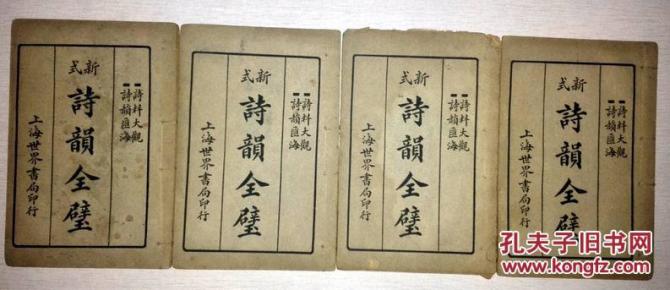 新式
詩料大觀
詩韻匯海
詩韻全璧
上海世界書局印行
新式
詩料大觀
詩韻匯海
詩韻全璧
上海世界書局印行
新式
詩料大觀
詩韻匯海
詩韻全璧
上海世界書局印行
新式
詩料大觀
詩韻匯海
詩韻全璧
上海世界書局印行
孔夫子旧书网
www.kongfz.com